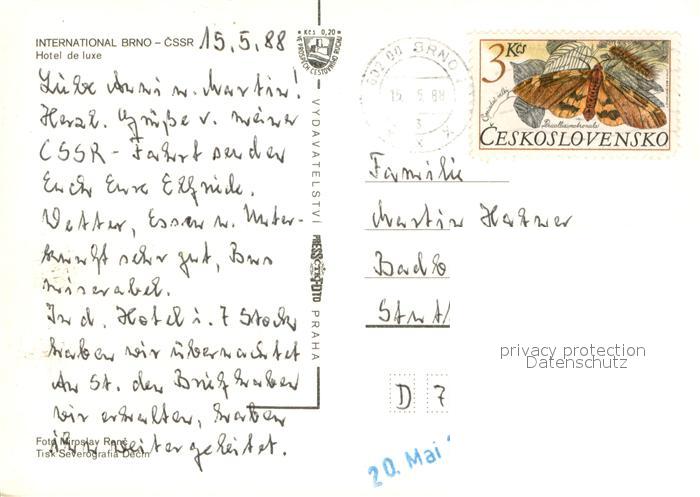 INTERNATIONAL BRNO – ČSSR 15.5.88
Hotel de luxe
Liebe Anni u. Martin!
Herzl. Grüße v. meiner
CSSR - Fahrt sendet
Euch Eure Elfriede.
Wetter, Essen u. Unter-
kunft sehr gut, Bus
miserabel.
In d. Hotel i. 7 Stock
haben wir übernachtet
An St. den Brief haben
wir erhalten, haben
ihn weitergeleitet.
Foto Miroslav
Tisk Severografia Děčín
Kčs 0,20
VE PROSPĚCH CESTOVNÍHO RUCHU
VYDAVATELSTVÍ PRESSFOTO PRAHA
BRNO
15.5.88
3 Kčs
ČESKOSLOVENSKO
Familie
Martin
Bad
Stutt
D 7
20. Mai
privacy protection
Datenschutz